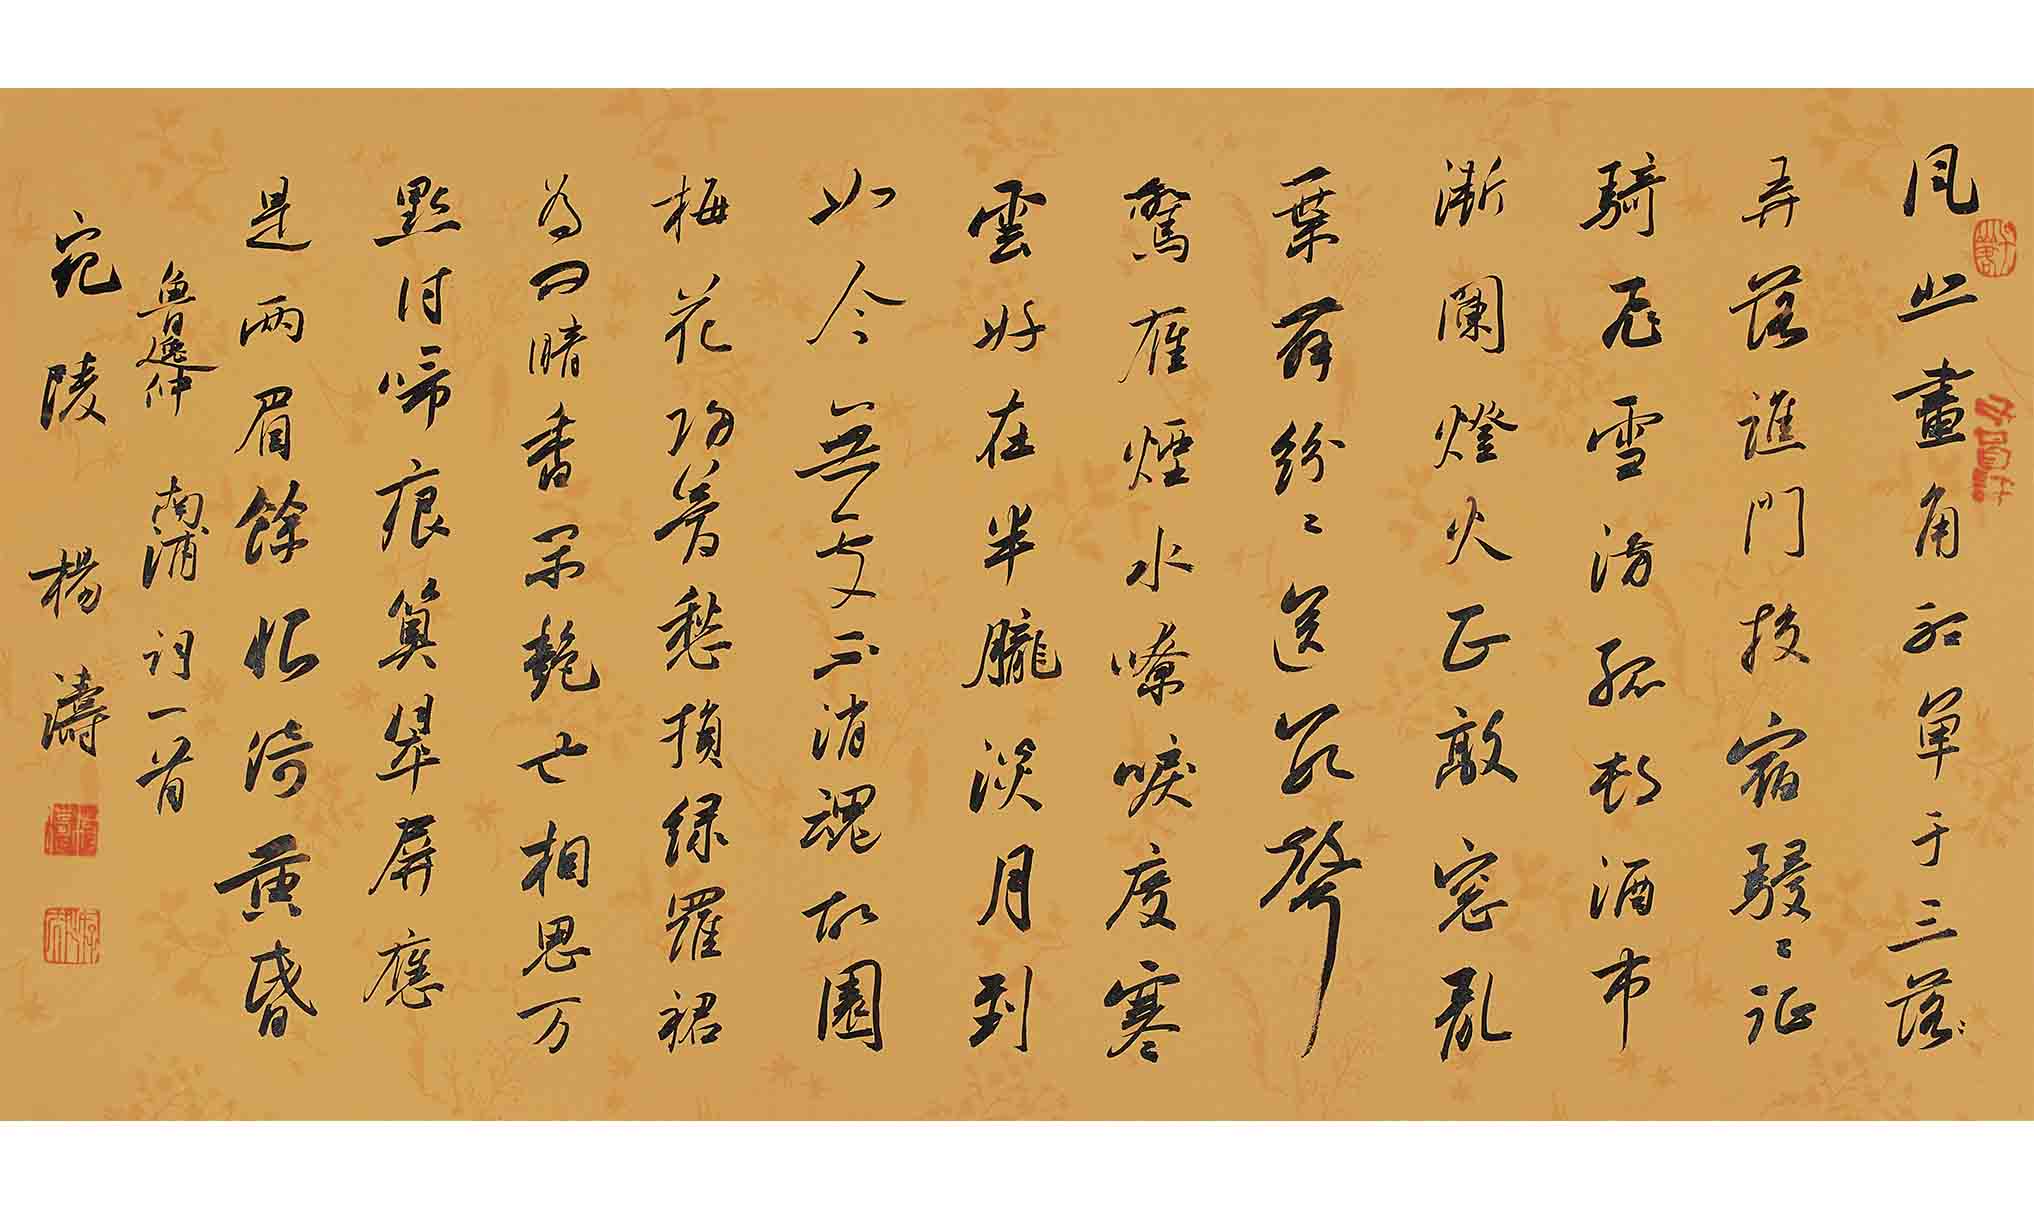 风悲畫角聽单于三落
弄落譙門投宿駸〻征
騎飛雪滿孤村酒市
漸闌燈火正敲窓亂
葉舞紛〻送数聲
驚雁煙水嘹唳度寒
雲好在半朧淡月到
如今無處不消魂故園
梅花歸夢愁損緑羅裙
為問暗香閑艷也相思万
點付啼痕算翠屏應
是兩眉餘恨倚黄昏
魯逸仲 南浦 词一首
宛陵 楊濤